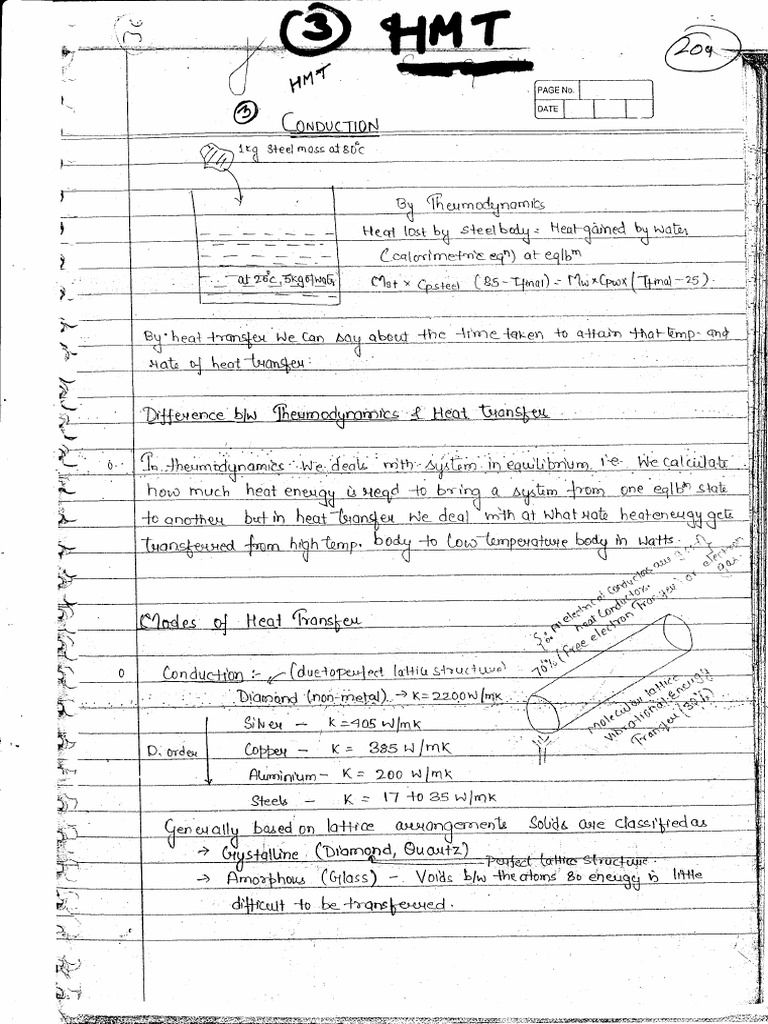 3 HMT
209
HMT
3
PAGE No.
DATE
CONDUCTION
1kg Steel mass at 80°c
By Thermodynamics
Heat lost by steel body = Heat gained by water
(calorimetric eqn) at eqlbm
at 20°c, 5kg of water
Mst × Cpsteel (85 - Tfinal) = Mw × Cpw × (Tfinal - 25).
By heat transfer we can say about the time taken to attain that temp. and
rate of heat transfer.
Difference b/w Thermodynamics & Heat transfer
In thermodynamics we deals with system in equilibrium i.e. We calculate
how much heat energy is reqd to bring a system from one eqlbm state
to another but in heat transfer we deal with at what rate heat energy gets
transferred from high temp. body to low temperature body in watts.
Modes of Heat Transfer
All electrical conductors are good
heat conductors.
70% (free electron Transfer or electron
gas
Conduction :- (due to perfect lattice structure)
Diamond (non-metal) → K = 2200 W/mk
molecular lattice
vibrational energy
Transfer (30%)
D. order
Silver - K = 405 W/mk
Copper - K = 385 W/mk
Aluminium - K = 200 W/mk
Steels - K = 17 to 35 W/mk
Generally based on lattice arrangements Solids are classified as
→ Crystalline (Diamond, Quartz)
Perfect lattice structure.
→ Amorphous (Glass) - Voids b/w the atoms so energy is little
difficult to be transferred.